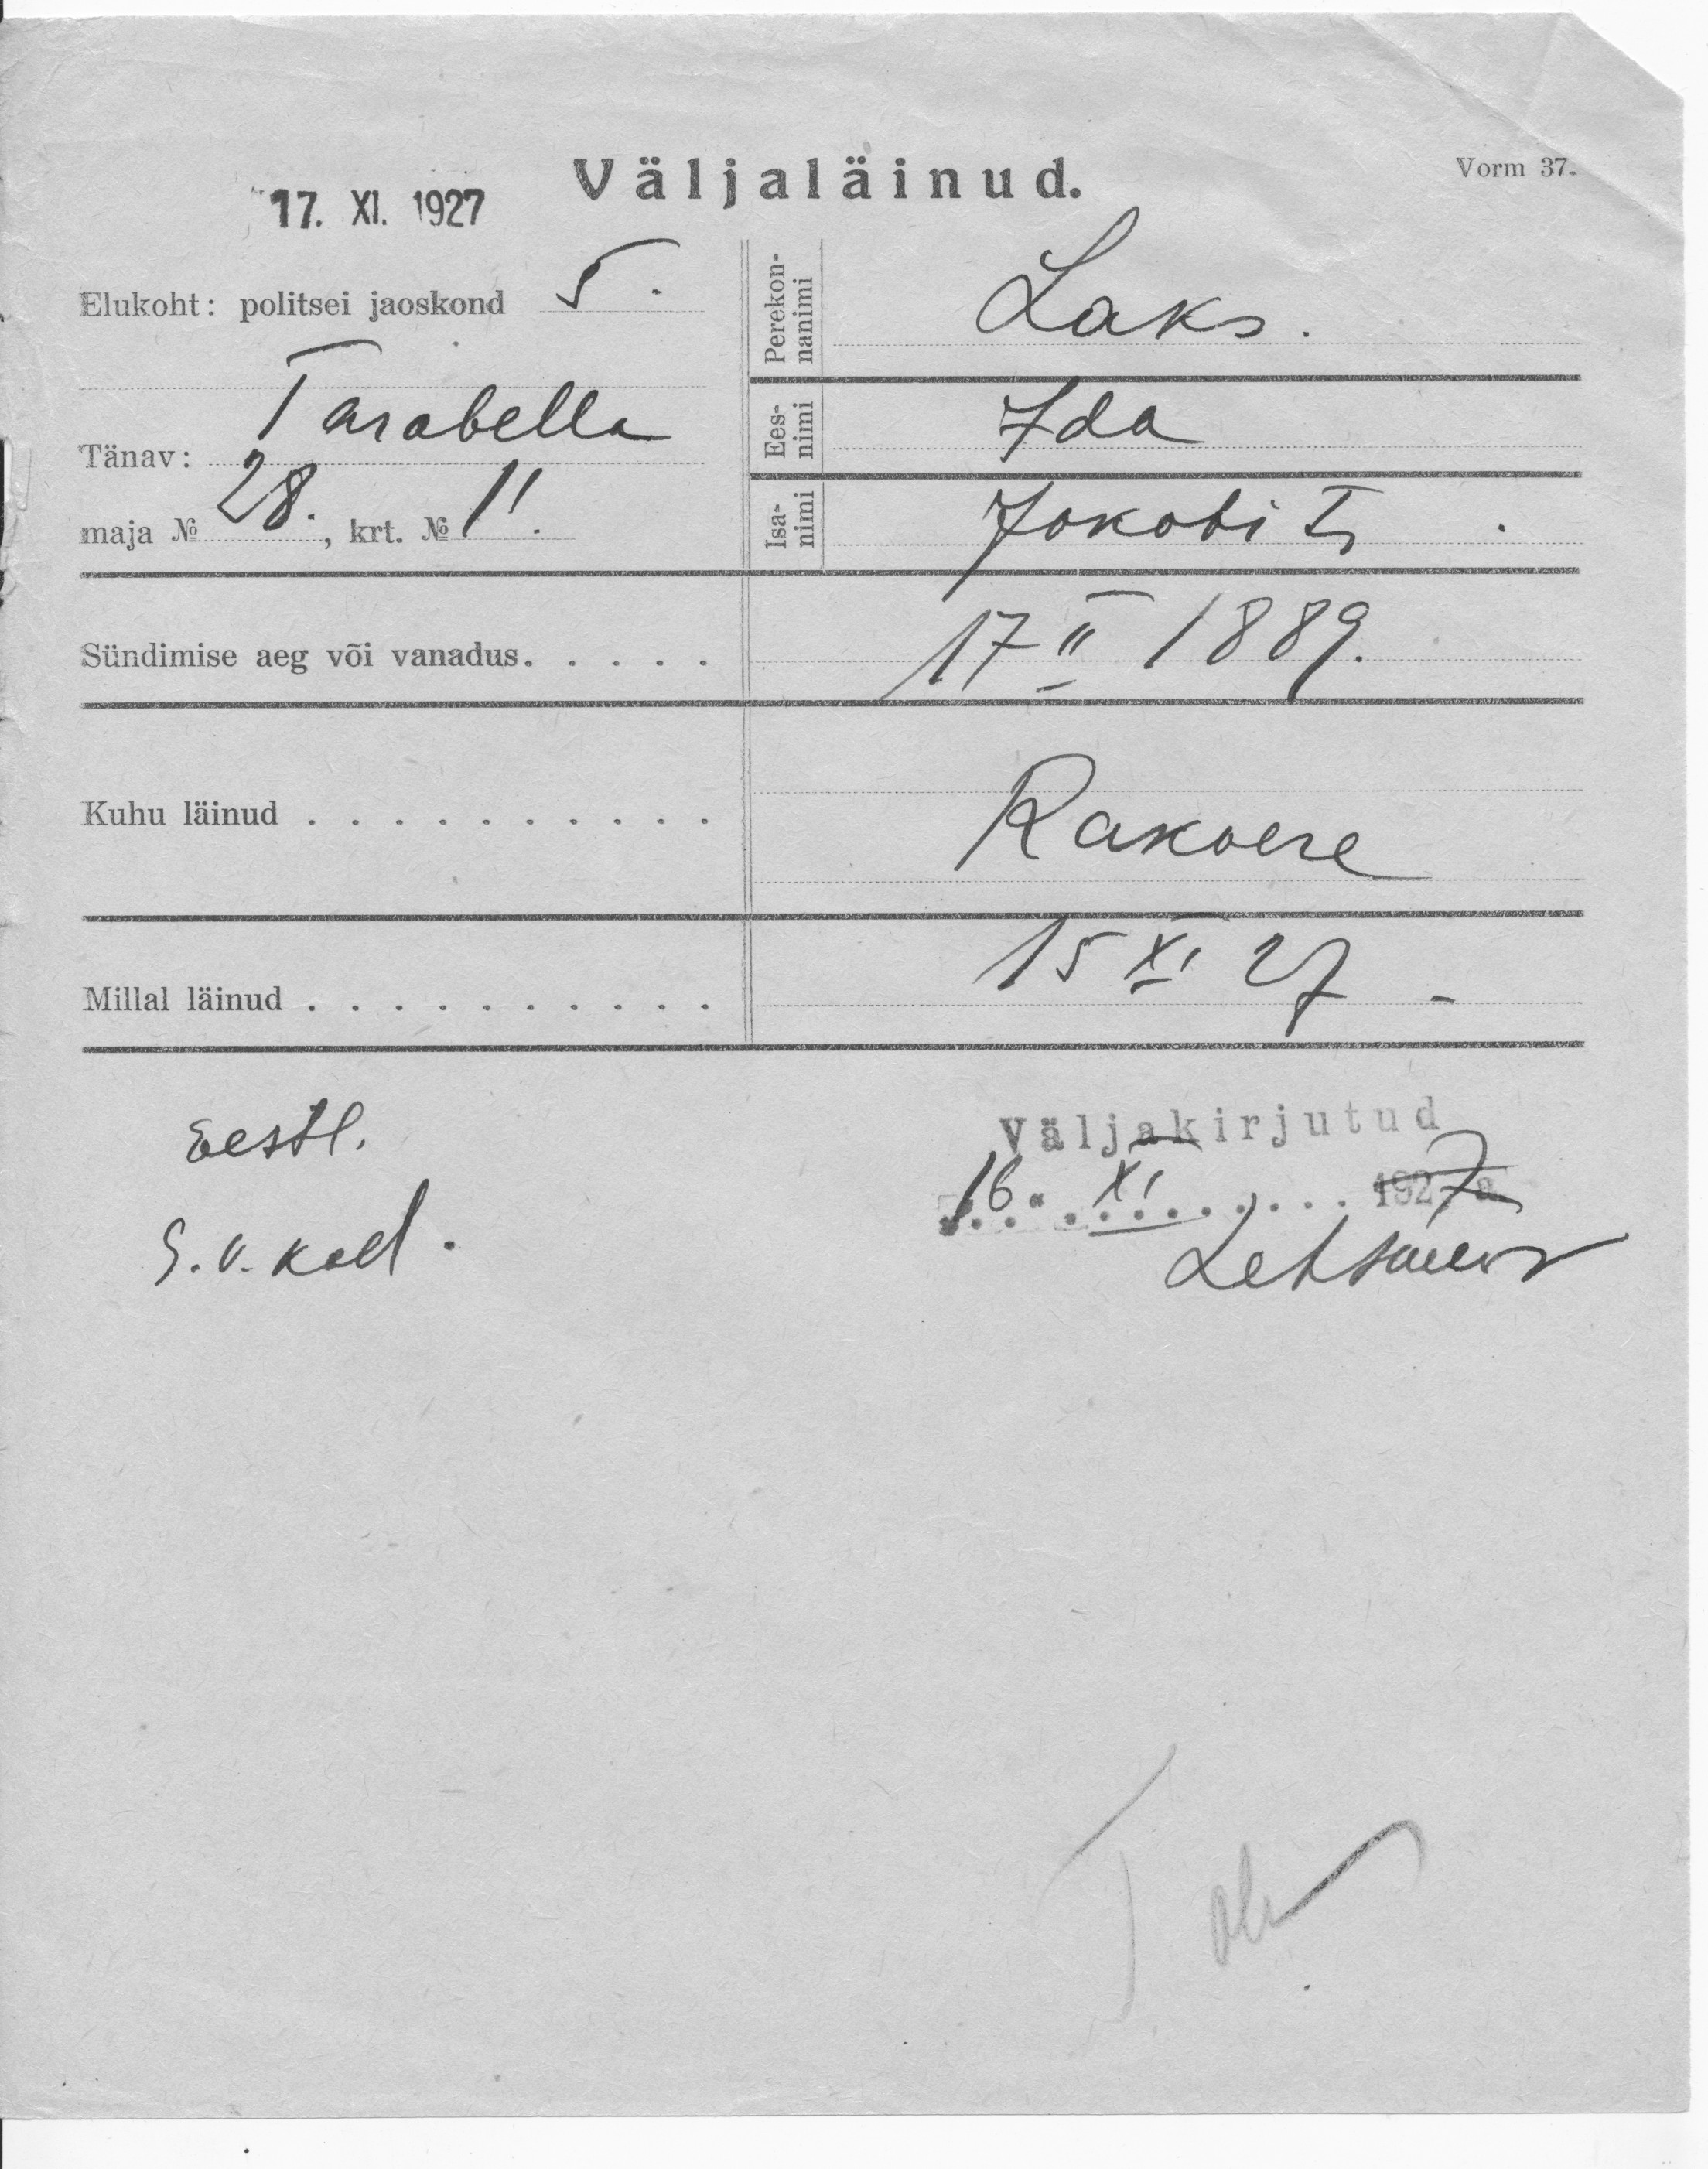 Väljaläinud.
Vorm 37.
17. XI. 1927
Elukoht: politsei jaoskond 5.
Tänav: Tarabella
maja № 28. , krt. № 11.
Perekon-
nanimi
Laks.
Ees-
nimi
Ida
Isa-
nimi
Jakobi
Sündimise aeg või vanadus. . . . .
17 II 1889.
Kuhu läinud . . . . . . . . . .
Rakvere
Millal läinud . . . . . . . . . .
15 XI 27 -
Eestl.
Väljakirjutud
16. XI 1927 a